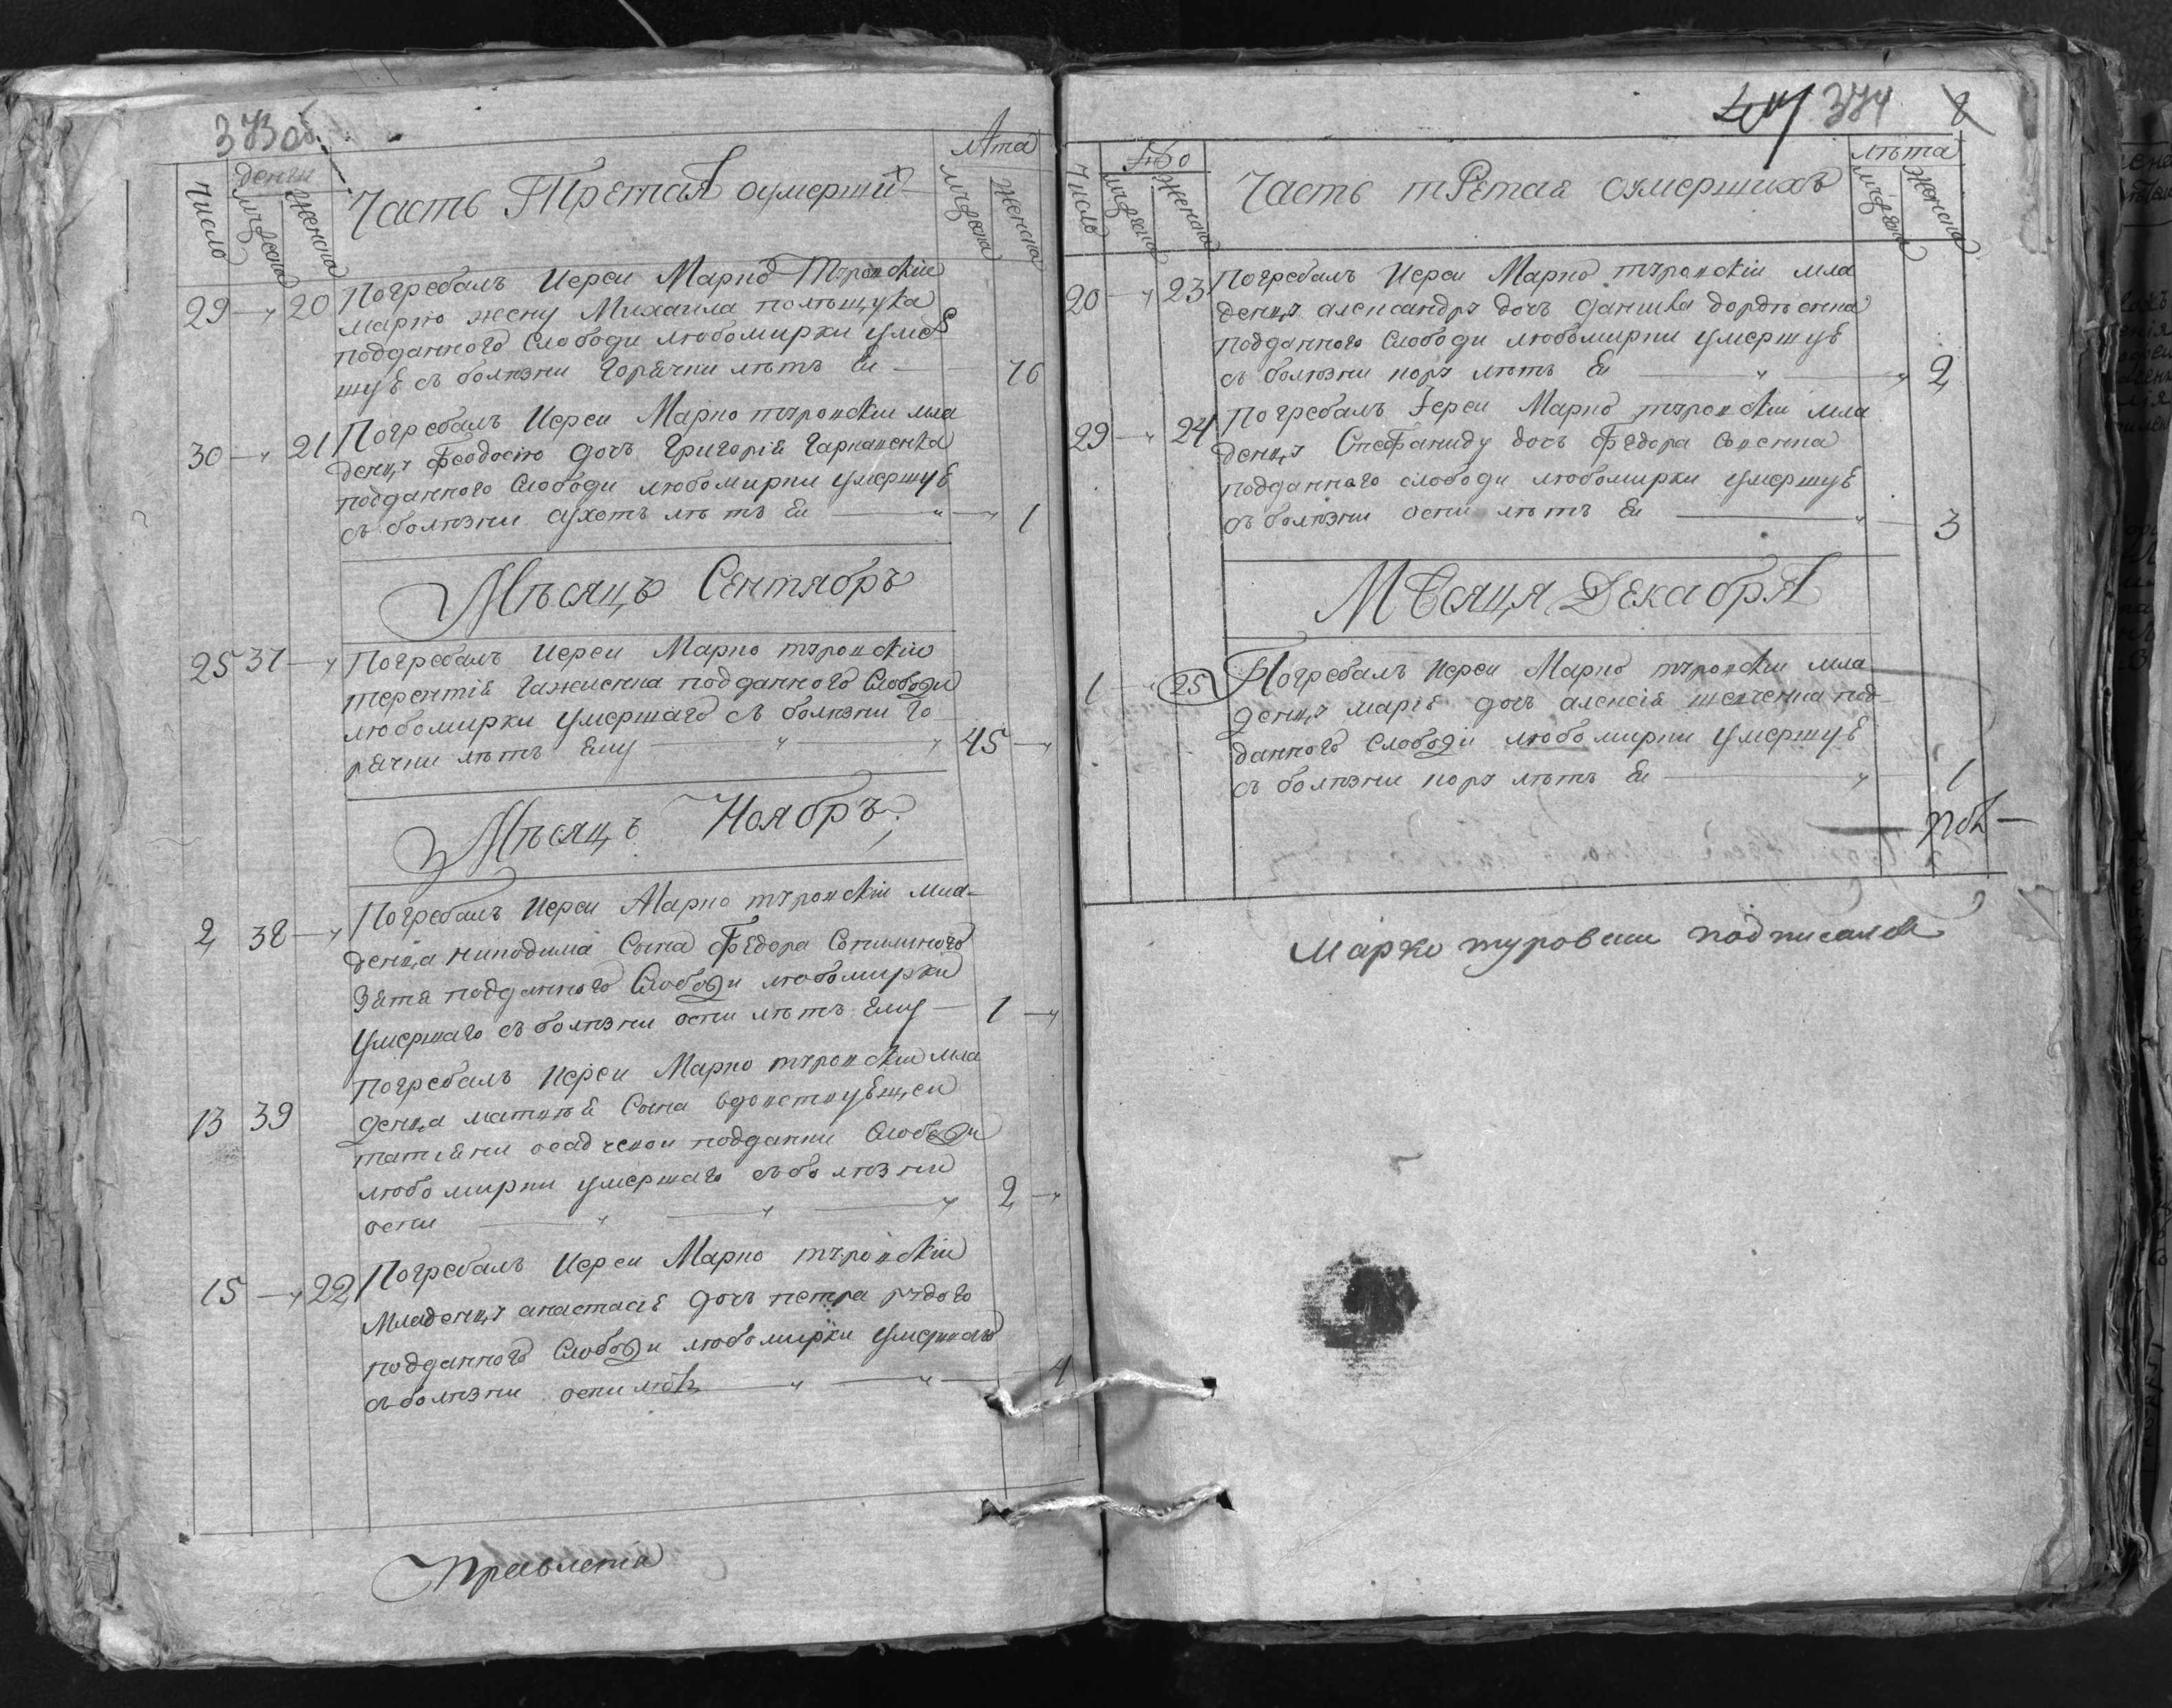 373об.
Число
мужеска
женска
Часть Третая оумерших
лѣта
мужеска
женска
29 20 Погребалъ Иереи Марко Туровскіи
Марию жену Михаила полѣщука
подданного Слободи любомирки умер
шуя съ болѣзни Горячки лѣтъ Ей 76
30 21 Погребалъ Иереи Марко туровскіи мла
денца Феодосію дочь Григорія
подданного Слободи любомирки умершуя
съ болѣзни сухотъ лѣтъ Ей 1
Мѣсяцъ Сентябръ
25 37 Погребалъ Иереи Марко туровскіи
терентія подданного Слободи
любомирки умершаго съ болѣзни Го
рячки лѣтъ Ему 45
Мѣсяцъ Ноябръ
2 38 Погребалъ Иереи Марко туровскіи мла-
денца никодима Сына Федора
Зятя подданного Слободи любомирки
умершаго съ болѣзни оспи лѣтъ Ему 1
13 39 погребалъ Иереи Марко туровскіи мла
денца матвѣя Сына вдовствующеи
татіяни осадчевои подданки Слободи
любомирки умершаго съ болѣзни
оспи 2
15 22 Погребалъ Иереи Марко туровскіи
младенца анастасія дочь петра рудого
подданного Слободи любомирки умершаго
съ болѣзни оспи лѣтъ 4
374
Число
мужеска
женска
Часть третая оумершихъ
лѣта
мужеска
женска
20 23 Погребалъ Иереи Марко туровскіи мла
денца александру дочь данила
подданного Слободи любомирки умершуя
съ болѣзни кору лѣтъ Ей 2
29 24 Погребалъ Іереи Марко туровскіи мла
денца Стефаниду дочь Федора
подданного слободи любомирки умершуя
съ болѣзни оспи лѣтъ Ей 3
Мѣсяця Декабря
1 25 Погребалъ Иереи Марко туровскіи мла
денца марія дочь алексія шевченка под-
данного Слободи любомирки умершуя
съ болѣзни кору лѣтъ Ей 1
Марко туровски подписался